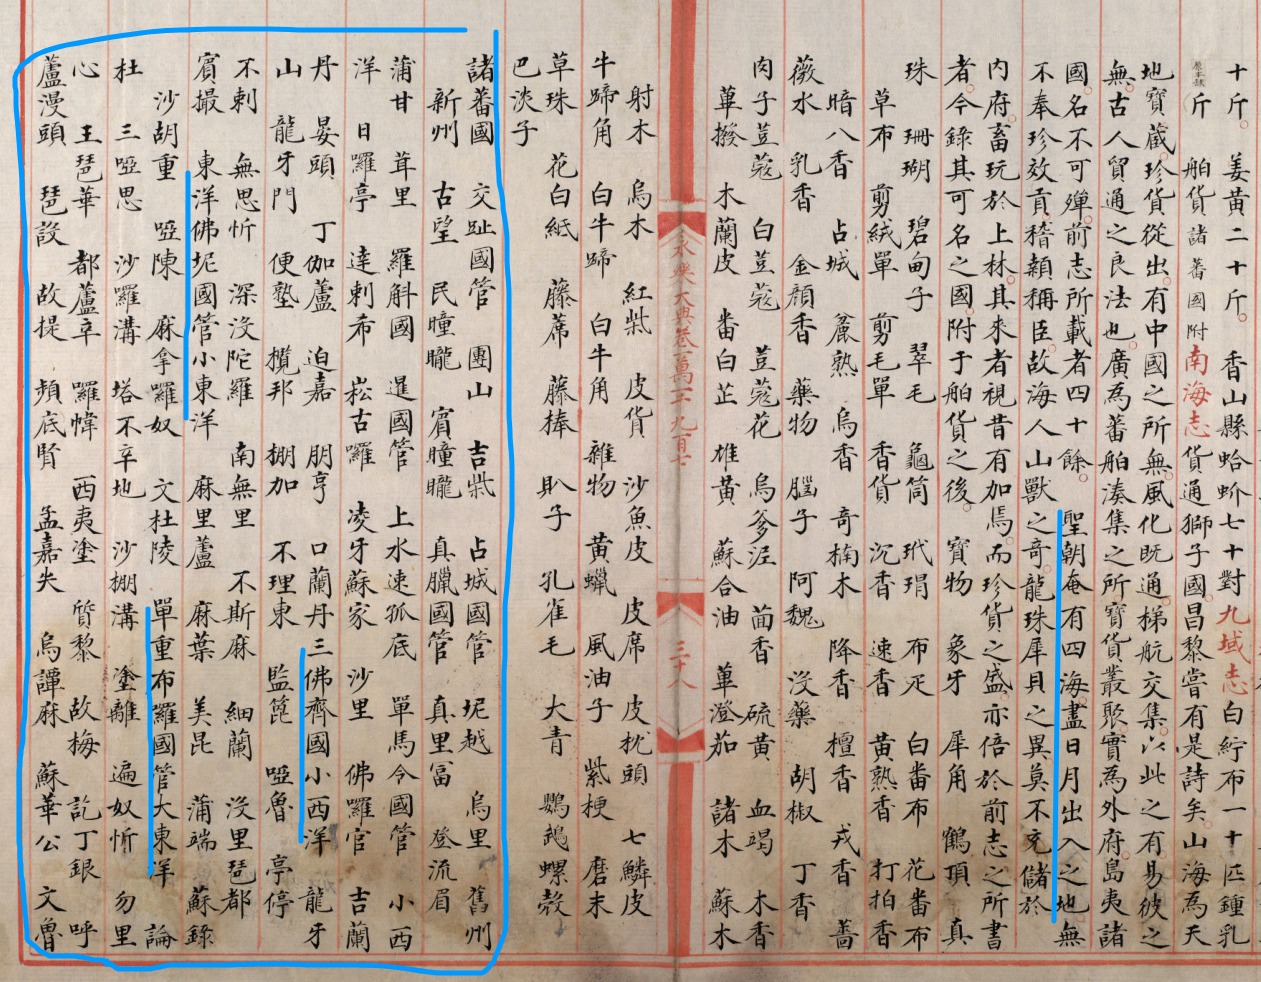 十斤 姜黄二十斤 香山縣蛤蚧七十對九域志白紵布一十匹鍾乳
原本缺斤 舶貨諸蕃國附南海志貨通獅子國昌黎嘗有是詩矣山海為天
地寶藏珍貨從出有中國之所無風化既通梯航交集以此之有易彼之
無古人貿通之良法也廣為蕃舶湊集之所寶貨叢聚實為外府島夷諸
國名不可殫前志所載者四十餘 聖朝奄有四海盡日月出入之地無
不奉珍效貢稽顙稱臣故海人山獸之奇龍珠犀貝之異莫不充儲於
内府畜玩於上林其来者視昔有加焉而珍貨之盛亦倍於前志之所書
者今錄其可名之國附于舶貨之後 寶物 象牙 犀角 鶴頂 真
珠 珊瑚 碧甸子 翠毛 龜筒 玳瑁 布疋 白番布 花番布
草布 剪絨單 剪毛單 香貨 沉香 速香 黄熟香 打拍香
暗八香 占城 麄熟 烏香 奇楠木 降香 檀香 戎香 薔
薇水 乳香 金顔香 藥物 腦子 阿魏 没藥 胡椒 丁香
肉子荳蔻 白荳蔻 荳蔻花 烏爹泥 茴香 硫黄 血竭 木香
蓽撥 木蘭皮 番白芷 雄黄 蘇合油 蓽澄茄 諸木 蘇木
射木 烏木 紅柴 皮貨 沙魚皮 皮席 皮枕頭 七鱗皮
牛蹄角 白牛蹄 白牛角 雜物 黄蠟 風油子 紫梗 磨末
草珠 花白紙 藤蓆 藤棒 𧴩子 孔雀毛 大青 鸚鵡螺殼
巴淡子
諸蕃國 交趾國管 團山 吉柴 占城國管 坭越 烏里 舊州
新州 古望 民瞳𥉸 賓瞳𥉸 真臘國管 真里富 登流眉
蒲甘 茸里 羅斛國 暹國管 上水速孤底 單馬令國管 小西
洋 日羅亭 達剌希 崧古羅 凌牙蘇家 沙里 佛羅官 吉蘭
丹 晏頭 丁伽蘆 迫嘉 朋亨 口蘭丹 三佛齊國小西洋 龍牙
山 龍牙門 便塾 欖邦 棚加 不理東 監篦 啞魯 亭停
不剌 無思忻 深没陀羅 南無里 不斯麻 細蘭 没里琶都
賓撮 東洋佛坭國管小東洋 麻里蘆 麻葉 美昆 蒲端 蘇錄
沙胡重 啞陳 麻拿羅奴 文杜陵 單重布羅國管大東洋 論
杜 三啞思 沙羅溝 塔不辛地 沙棚溝 塗離 遍奴忻 勿里
心 王琶華 都蘆辛 羅幃 西夷塗 質黎 故梅 訖丁銀 呼
蘆漫頭 琶設 故提 頻底賢 孟嘉失 烏譚麻 蘇華公 文魯
永樂大典卷一萬一千九百七
三十八